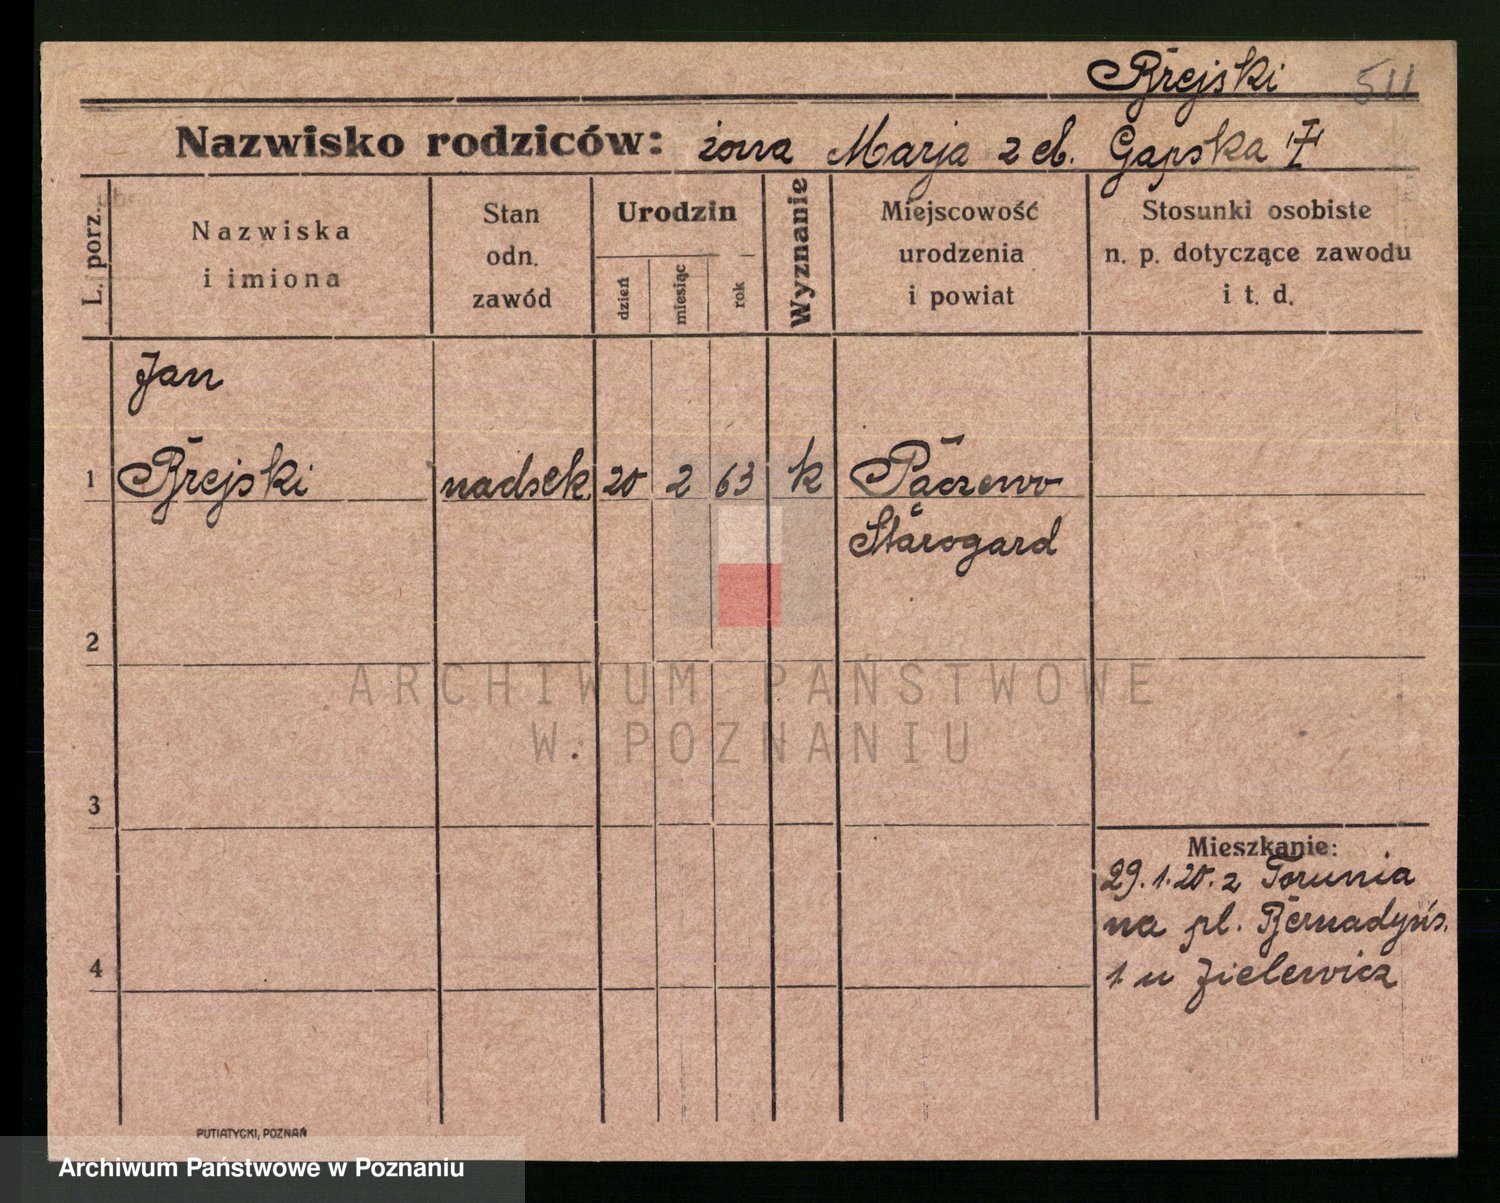 Brejski 511
Nazwisko rodziców: żona Marja z d. Gapska
L. porz.
Nazwiska
i imiona
Stan
odn.
zawód
Urodzin
dzień
miesiąc
rok
Wyznanie
Miejscowość
urodzenia
i powiat
Stosunki osobiste
n. p. dotyczące zawodu
i t. d.
Jan
1 Brejski nadsek. 20 2 63 k Paczewo
Starogard
2
3
4
Mieszkanie:
29.1.20. z Torunia
na pl. Bernadyńs.
1 u Zielewicz
ARCHIWUM PAŃSTWOWE
W POZNANIU
PUTIATYCKI, POZNAŃ
Archiwum Państwowe w Poznaniu